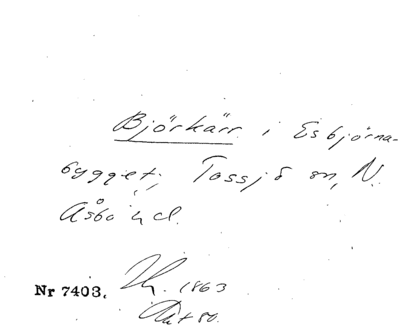 Björkärr i Esbjörna-
bygget, Tossjö sn, N.
Åsbo hd.
Nr 7403. 1863